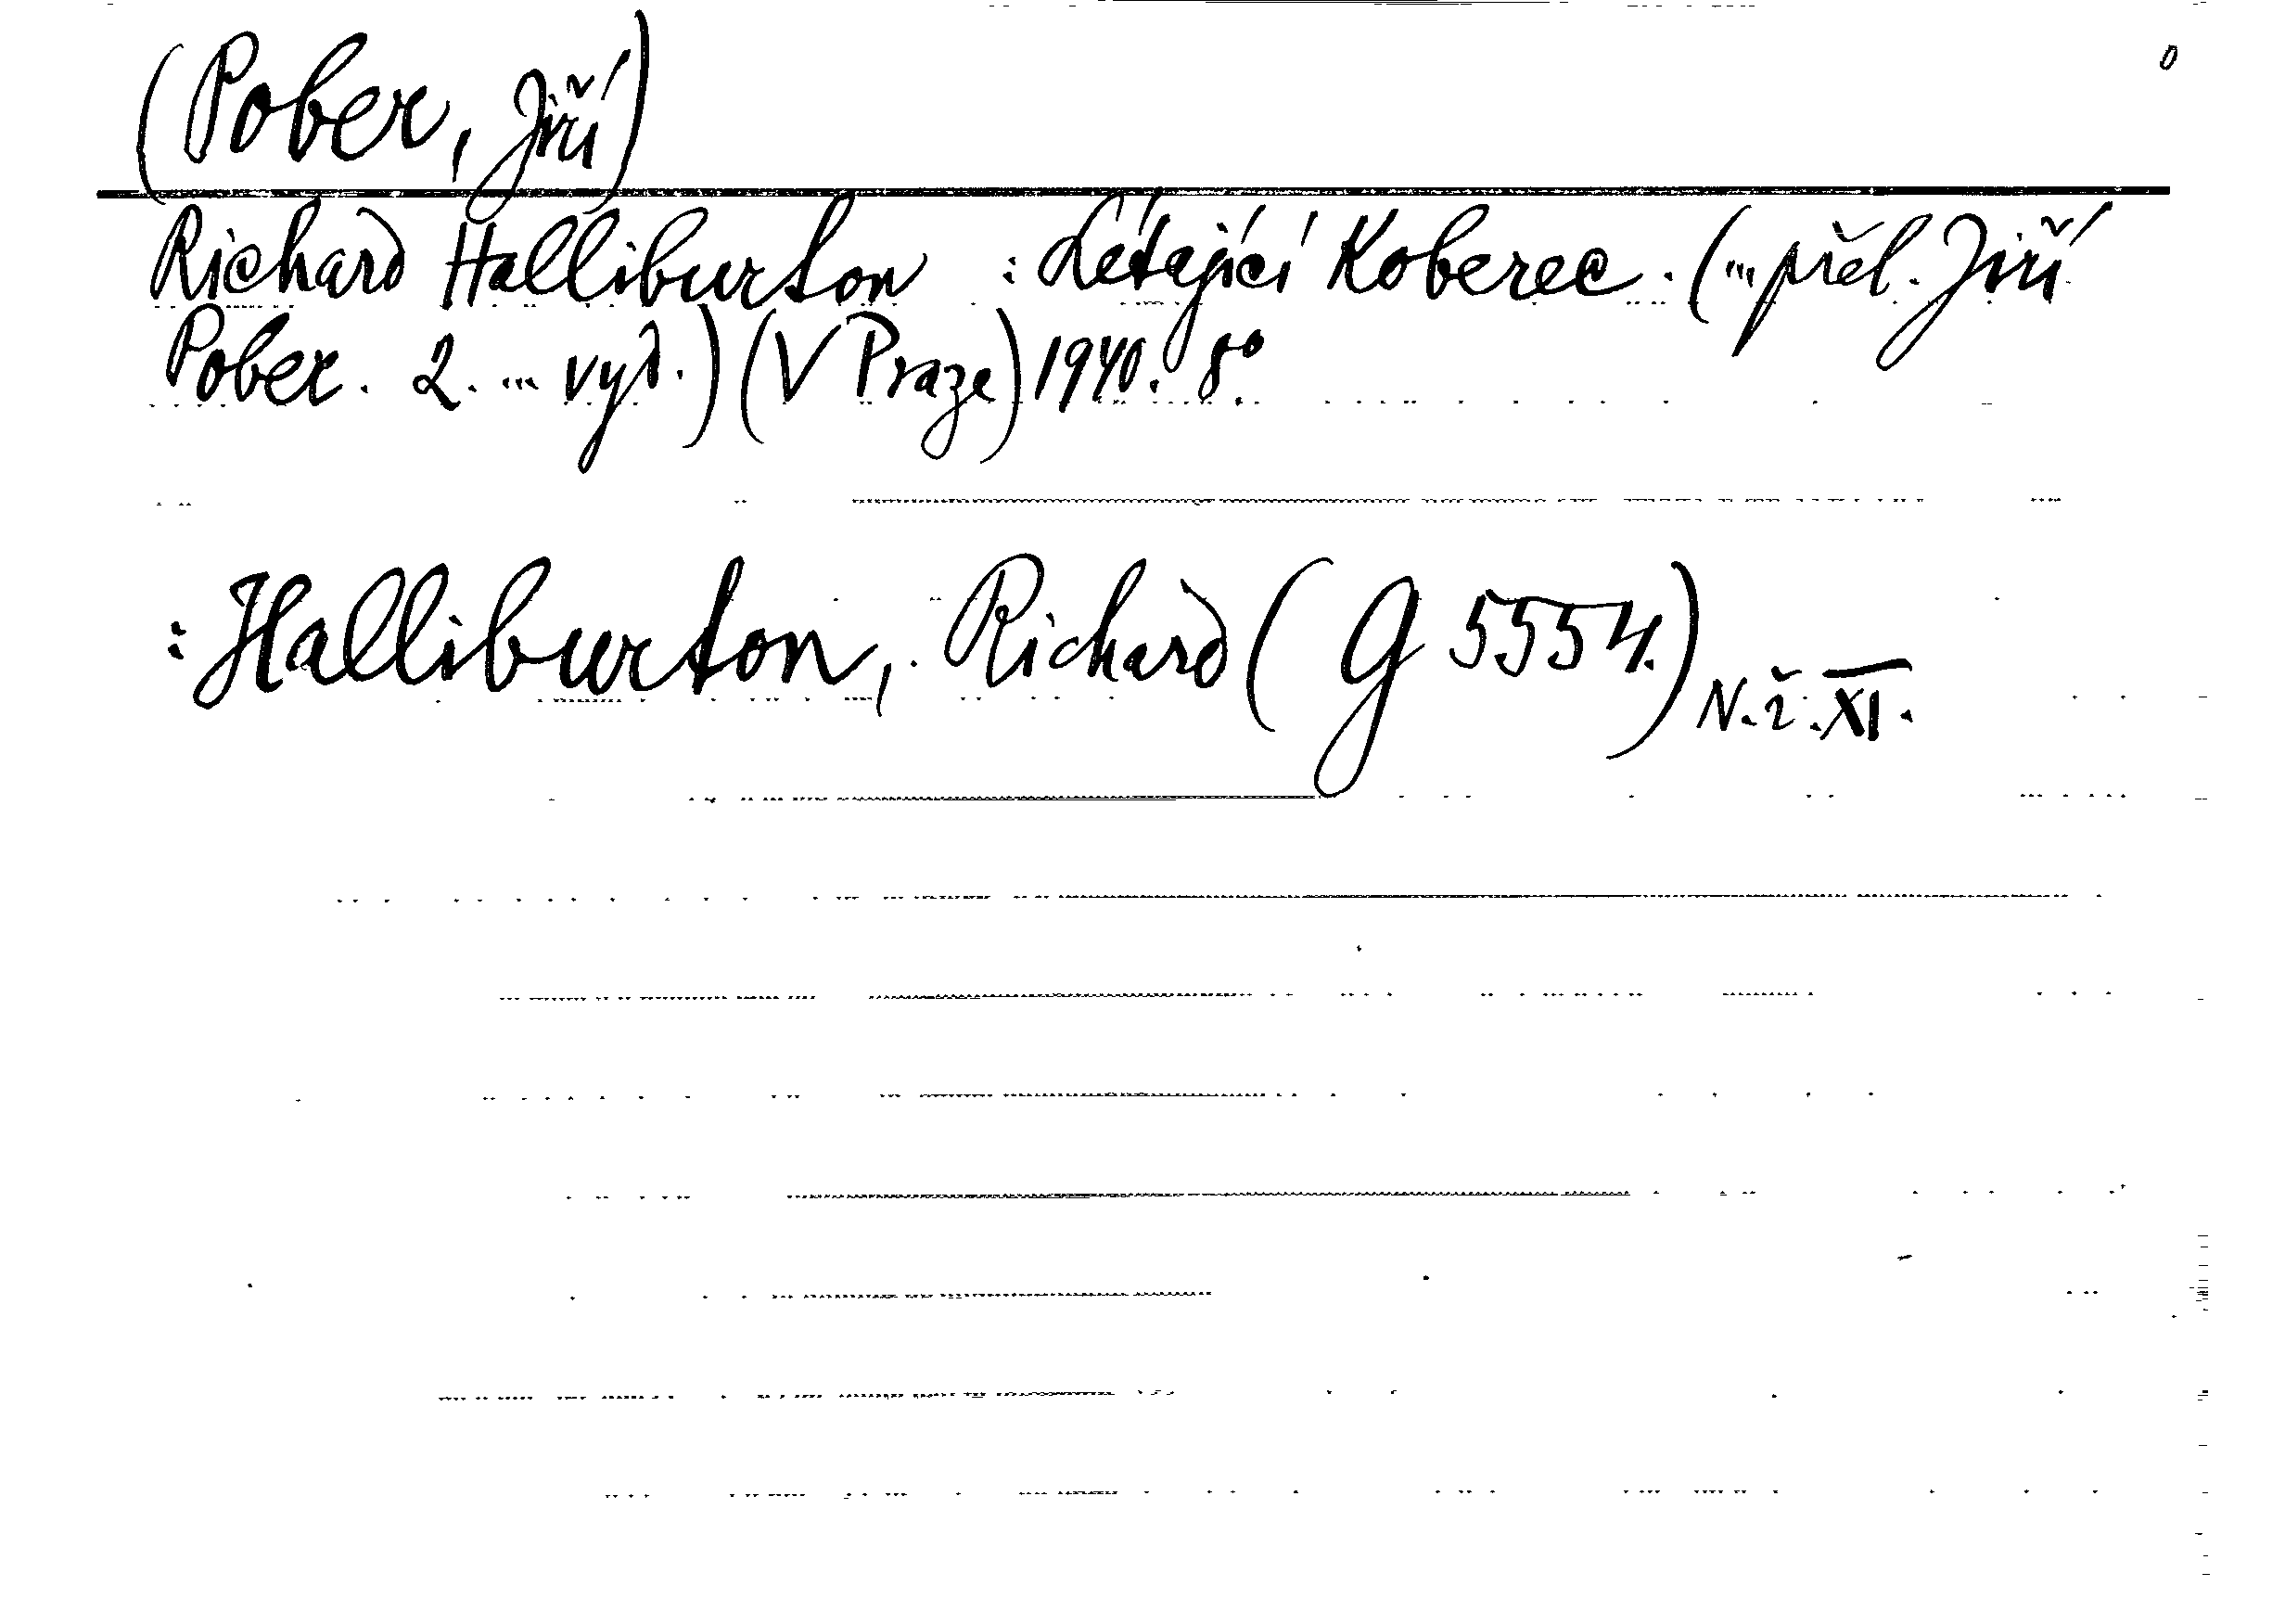 (Pober, Jiří) 0
Richard Halliburton : Létající Koberec. (... přel. Jiří
Pober. 2. ... vyd.) (V Praze) 1940. 8°.
: Halliburton, Richard (G 5554.) N. ř. XI.